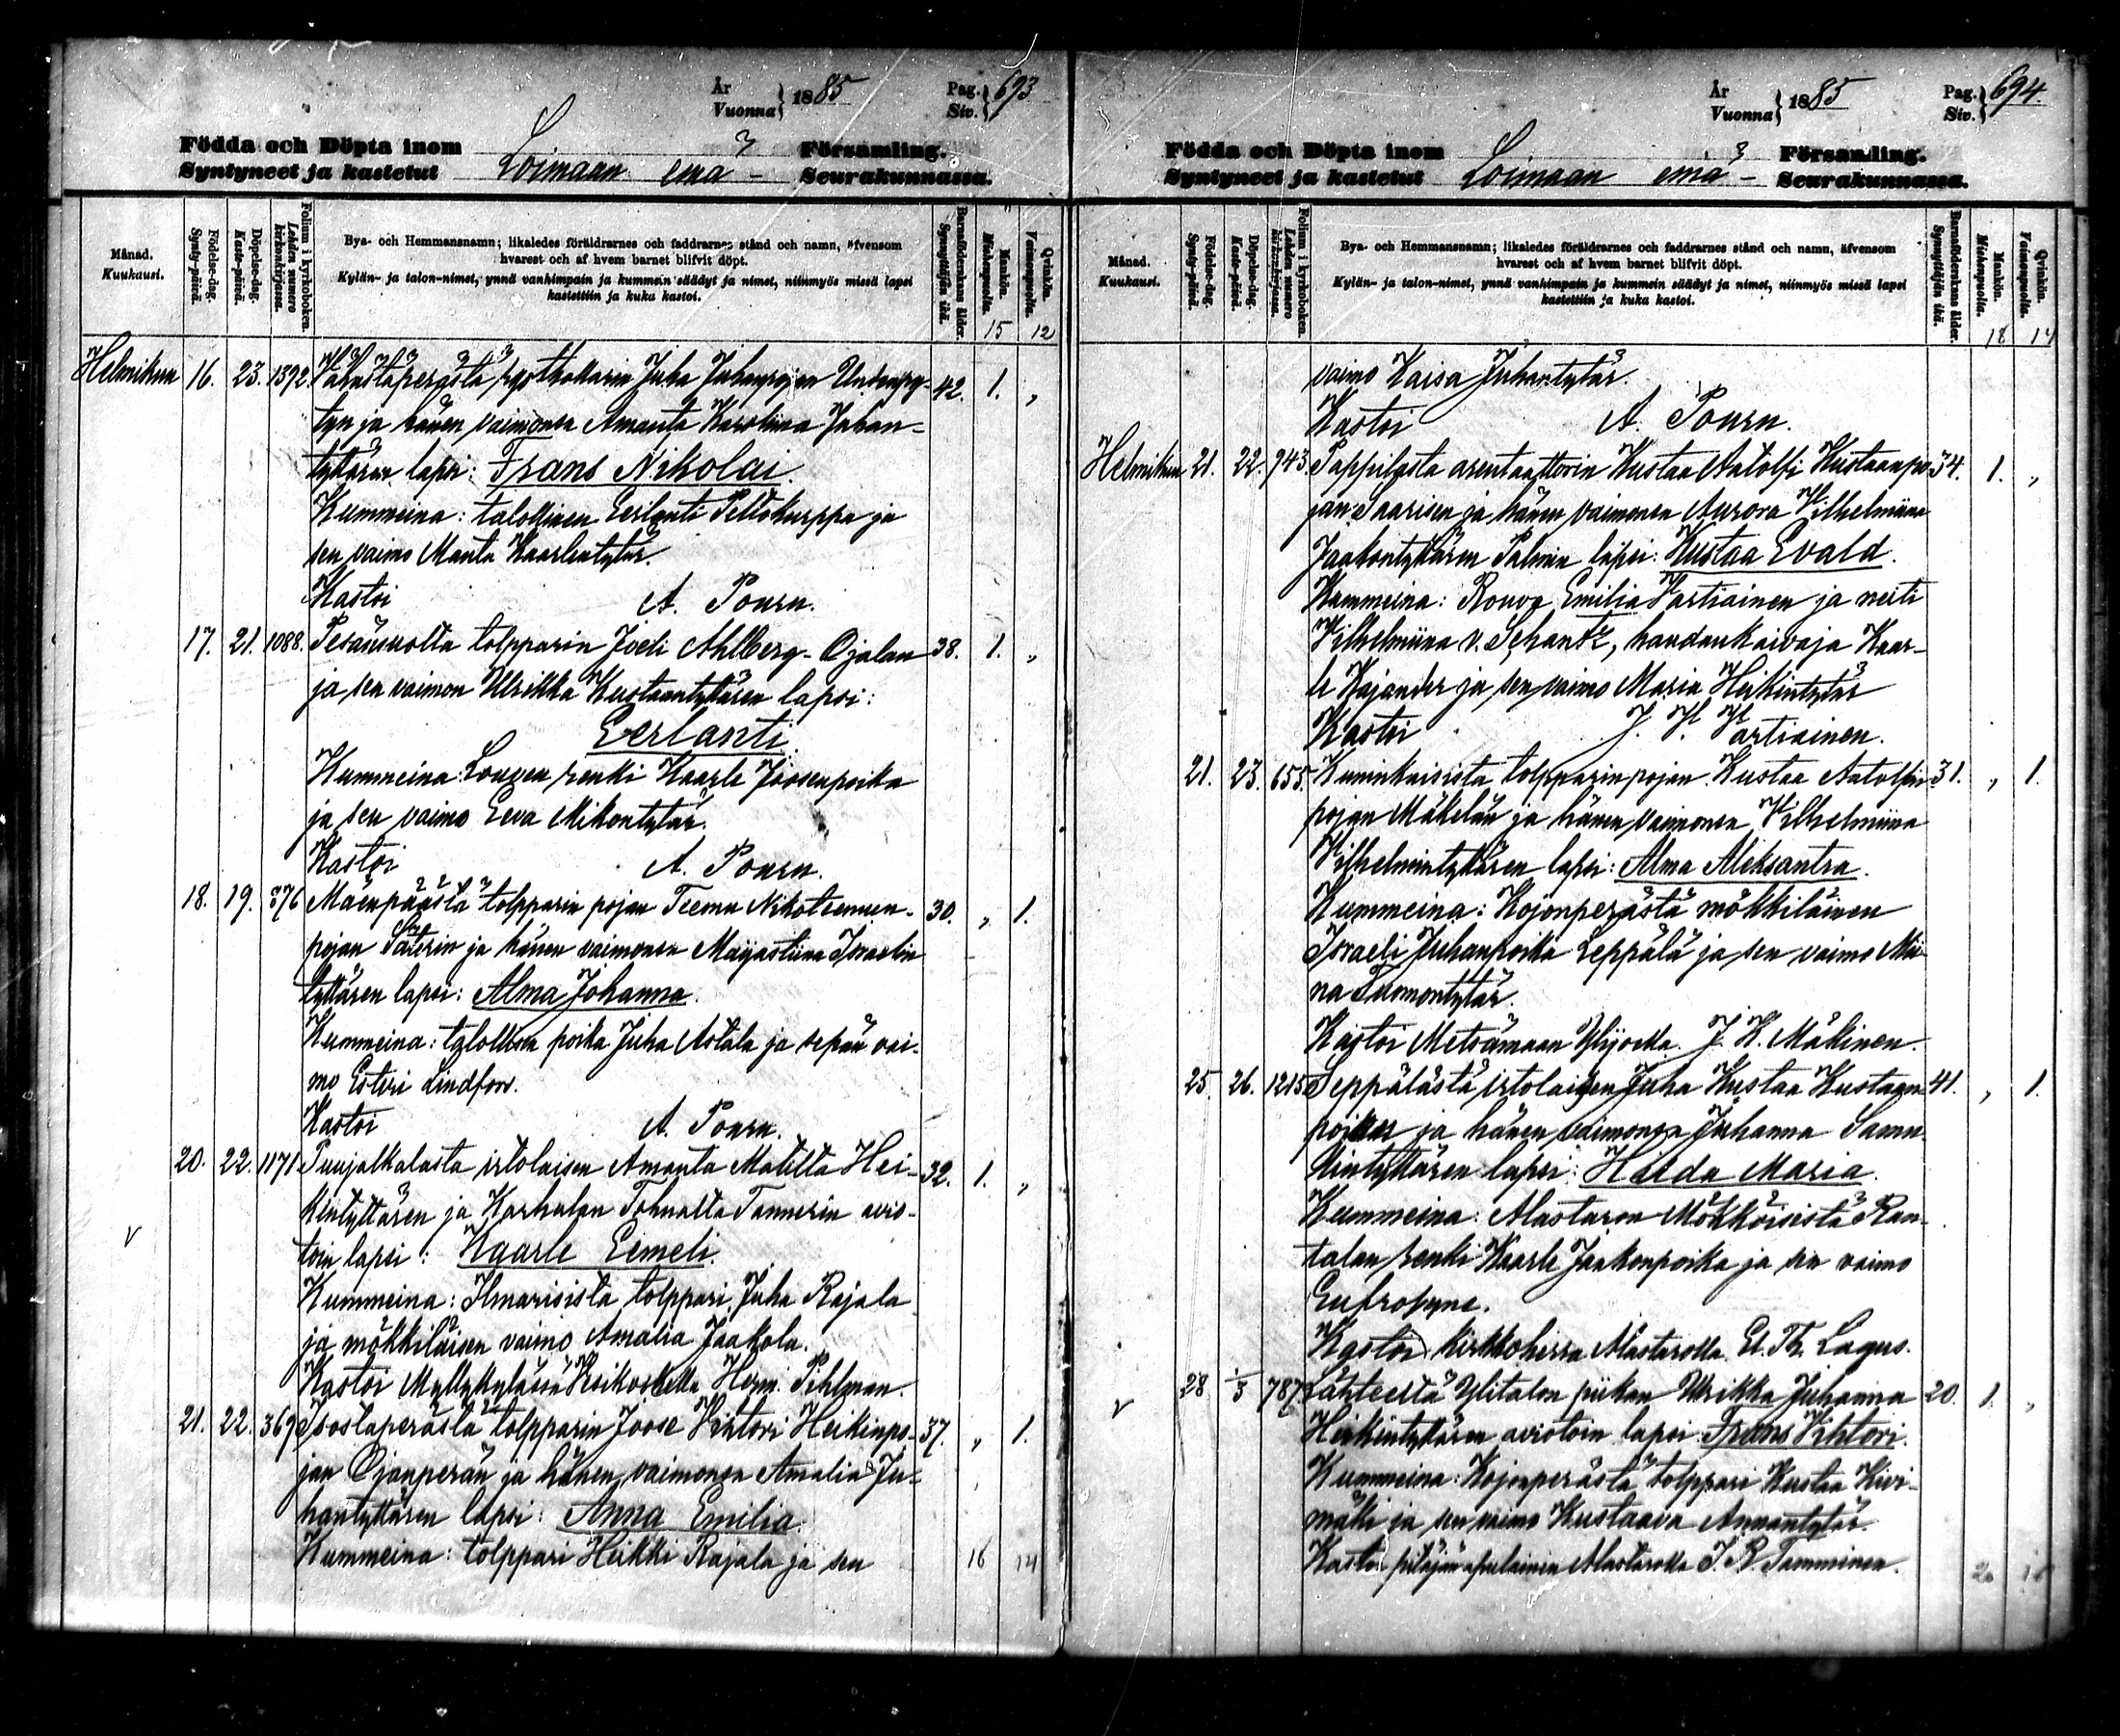 År
Vuonna } 1885
Pag.
Siv. } 693
Födda och Döpta inom
Syntyneet ja kastetut
Loimaan emä-
Församling.
Seurakunnassa.
Månad.
Kuukausi.
Födelse-dag.
Synty-päivä.
Döpelse-dag.
Kaste-päivä.
Folium i kyrkoboken.
Lehden numero kirkonkirjassa.
Bya- och Hemmansnamn; likaledes föräldrarnes och faddrarnes stånd och namn, äfvensom
hvarest och af hvem barnet blifvit döpt.
Kylän- ja talon-nimet, ynnä vanhimpain ja kummein säädyt ja nimet, niinmyös missä lapsi
kastettiin ja kuka kastoi.
Barnaföderskans ålder.
Synnyttäjän ikä.
Mankön.
Miehenpuolia.
Qvinkön.
Vaimonpuolia.
15 12
Helmikuu 16. 23. 1392. Juha Juhanpojan 42. 1. „
tyn ja hänen vaimonsa Amanta Karolina Juhan-
tyttären lapsi: Frans Nikolai.
Kummeina: talollinen Eerlanti Peltokurppa ja
sen vaimo Manta Kaarlentytär.
Kastoi A. Pourn.
17. 21. 1088. Pesänsuolta tolpparin Joeli Ahlberg-Ojalan 38. 1. „
ja sen vaimon Ulrikka Kustaantyttären lapsi:
Eerlanti.
Kummeina: renki Kaarle Joosenpoika
ja sen vaimo Eeva Mikontytär.
Kastoi A. Pourn.
18. 19. 376 Mäenpäästä tolpparin pojan Teemu Nikotemun- 30. „ 1.
pojan ja hänen vaimonsa Majastiina Israelin
tyttären lapsi: Alma Johanna.
Kummeina: talollisen poika Juha Astala ja sepän vai-
mo Esteri Lindfors.
Kastoi A. Pourn.
20. 22. 1171 Puujalkalasta irtolaisen Amanta Matilta Hei- 32. 1. „
kintyttären ja Karhulan Tannerin avio-
toin lapsi: Kaarle Eemeli.
Kummeina: Ilmarisista tolppari Juha Rajala
ja mökkiläisen vaimo Amalia Jaakola.
Kastoi Myllykylässä Herm. Pihlman.
21. 22. 369 Isostaperästä tolpparin Joose Vihtori Heikinpo- 37. „ 1.
jan Ojanperän ja hänen vaimonsa Amalia Ju-
hantyttären lapsi: Anna Emilia.
Kummeina: tolppari Heikki Rajala ja sen
16 14
År
Vuonna } 1885
Pag.
Siv. } 694.
Födda och Döpta inom
Syntyneet ja kastetut
Loimaan emä-
Församling.
Seurakunnassa.
Månad.
Kuukausi.
Födelse-dag.
Synty-päivä.
Döpelse-dag.
Kaste-päivä.
Folium i kyrkoboken.
Lehden numero kirkonkirjassa.
Bya- och Hemmansnamn; likaledes föräldrarnes och faddrarnes stånd och namn, äfvensom
hvarest och af hvem barnet blifvit döpt.
Kylän- ja talon-nimet, ynnä vanhimpain ja kummein säädyt ja nimet, niinmyös missä lapsi
kastettiin ja kuka kastoi.
Barnaföderskans ålder.
Synnyttäjän ikä.
Mankön.
Miehenpuolia.
Qvinkön.
Vaimonpuolia.
18 14
vaimo Kaisa Juhantytär.
Kastoi A. Pourn.
Helmikuu 21. 22. 943. Pappilasta arentaattorin Kustaa Aatolfi Kustaanpo- 34. 1. „
jan Saarisen ja hänen vaimonsa Aurora Vilhelmiina
Jaakontyttären Palmin lapsi: Kustaa Evald.
Kummeina: Rouva Emilia Vartiainen ja neiti
Vilhelmiina v. Schantz, haudankaivaja Kaar-
le Kajander ja sen vaimo Maria Heikintytär
Kastoi J. H. Vartiainen.
21. 23. 655. Kuninkaisista tolpparinpojan Kustaa Aatolfin- 31. „ 1.
pojan Mäkelän ja hänen vaimonsa Vilhelmiina
Vilhelmintyttären lapsi: Alma Aleksantra.
Kummeina: Kojonperästä mökkiläinen
Israeli Juhanpoika Leppälä ja sen vaimo Mii-
na Tuomontytär.
Kastoi Metsämaan Ylijoella J. K. Mäkinen.
25. 26. 1215 Seppälästä irtolaisen Juha Kustaa Kustaan- 41. „ 1.
pojan ja hänen vaimonsa Juhanna Samu-
elintyttären lapsi: Hilda Maria.
Kummeina: Alastaron Mökköisistä Ran-
talan renki Kaarle Jaakonpoika ja sen vaimo
Eufrosyne.
Kastoi kirkkoherra Alastarolla El. Th. Lagus.
28 1/3 787. Lähteestä Ylitalon piikan Ulrikka Juhanna 20. 1. „
Heikintyttären aviotoin lapsi Frans Vihtori.
Kummeina: Kojonperästä tolppari Kustaa Kivi-
mäki ja sen vaimo Kustaava Annantytär.
Kastoi pitäjän apulainen Alastarolla J. R. Tamminen.
20